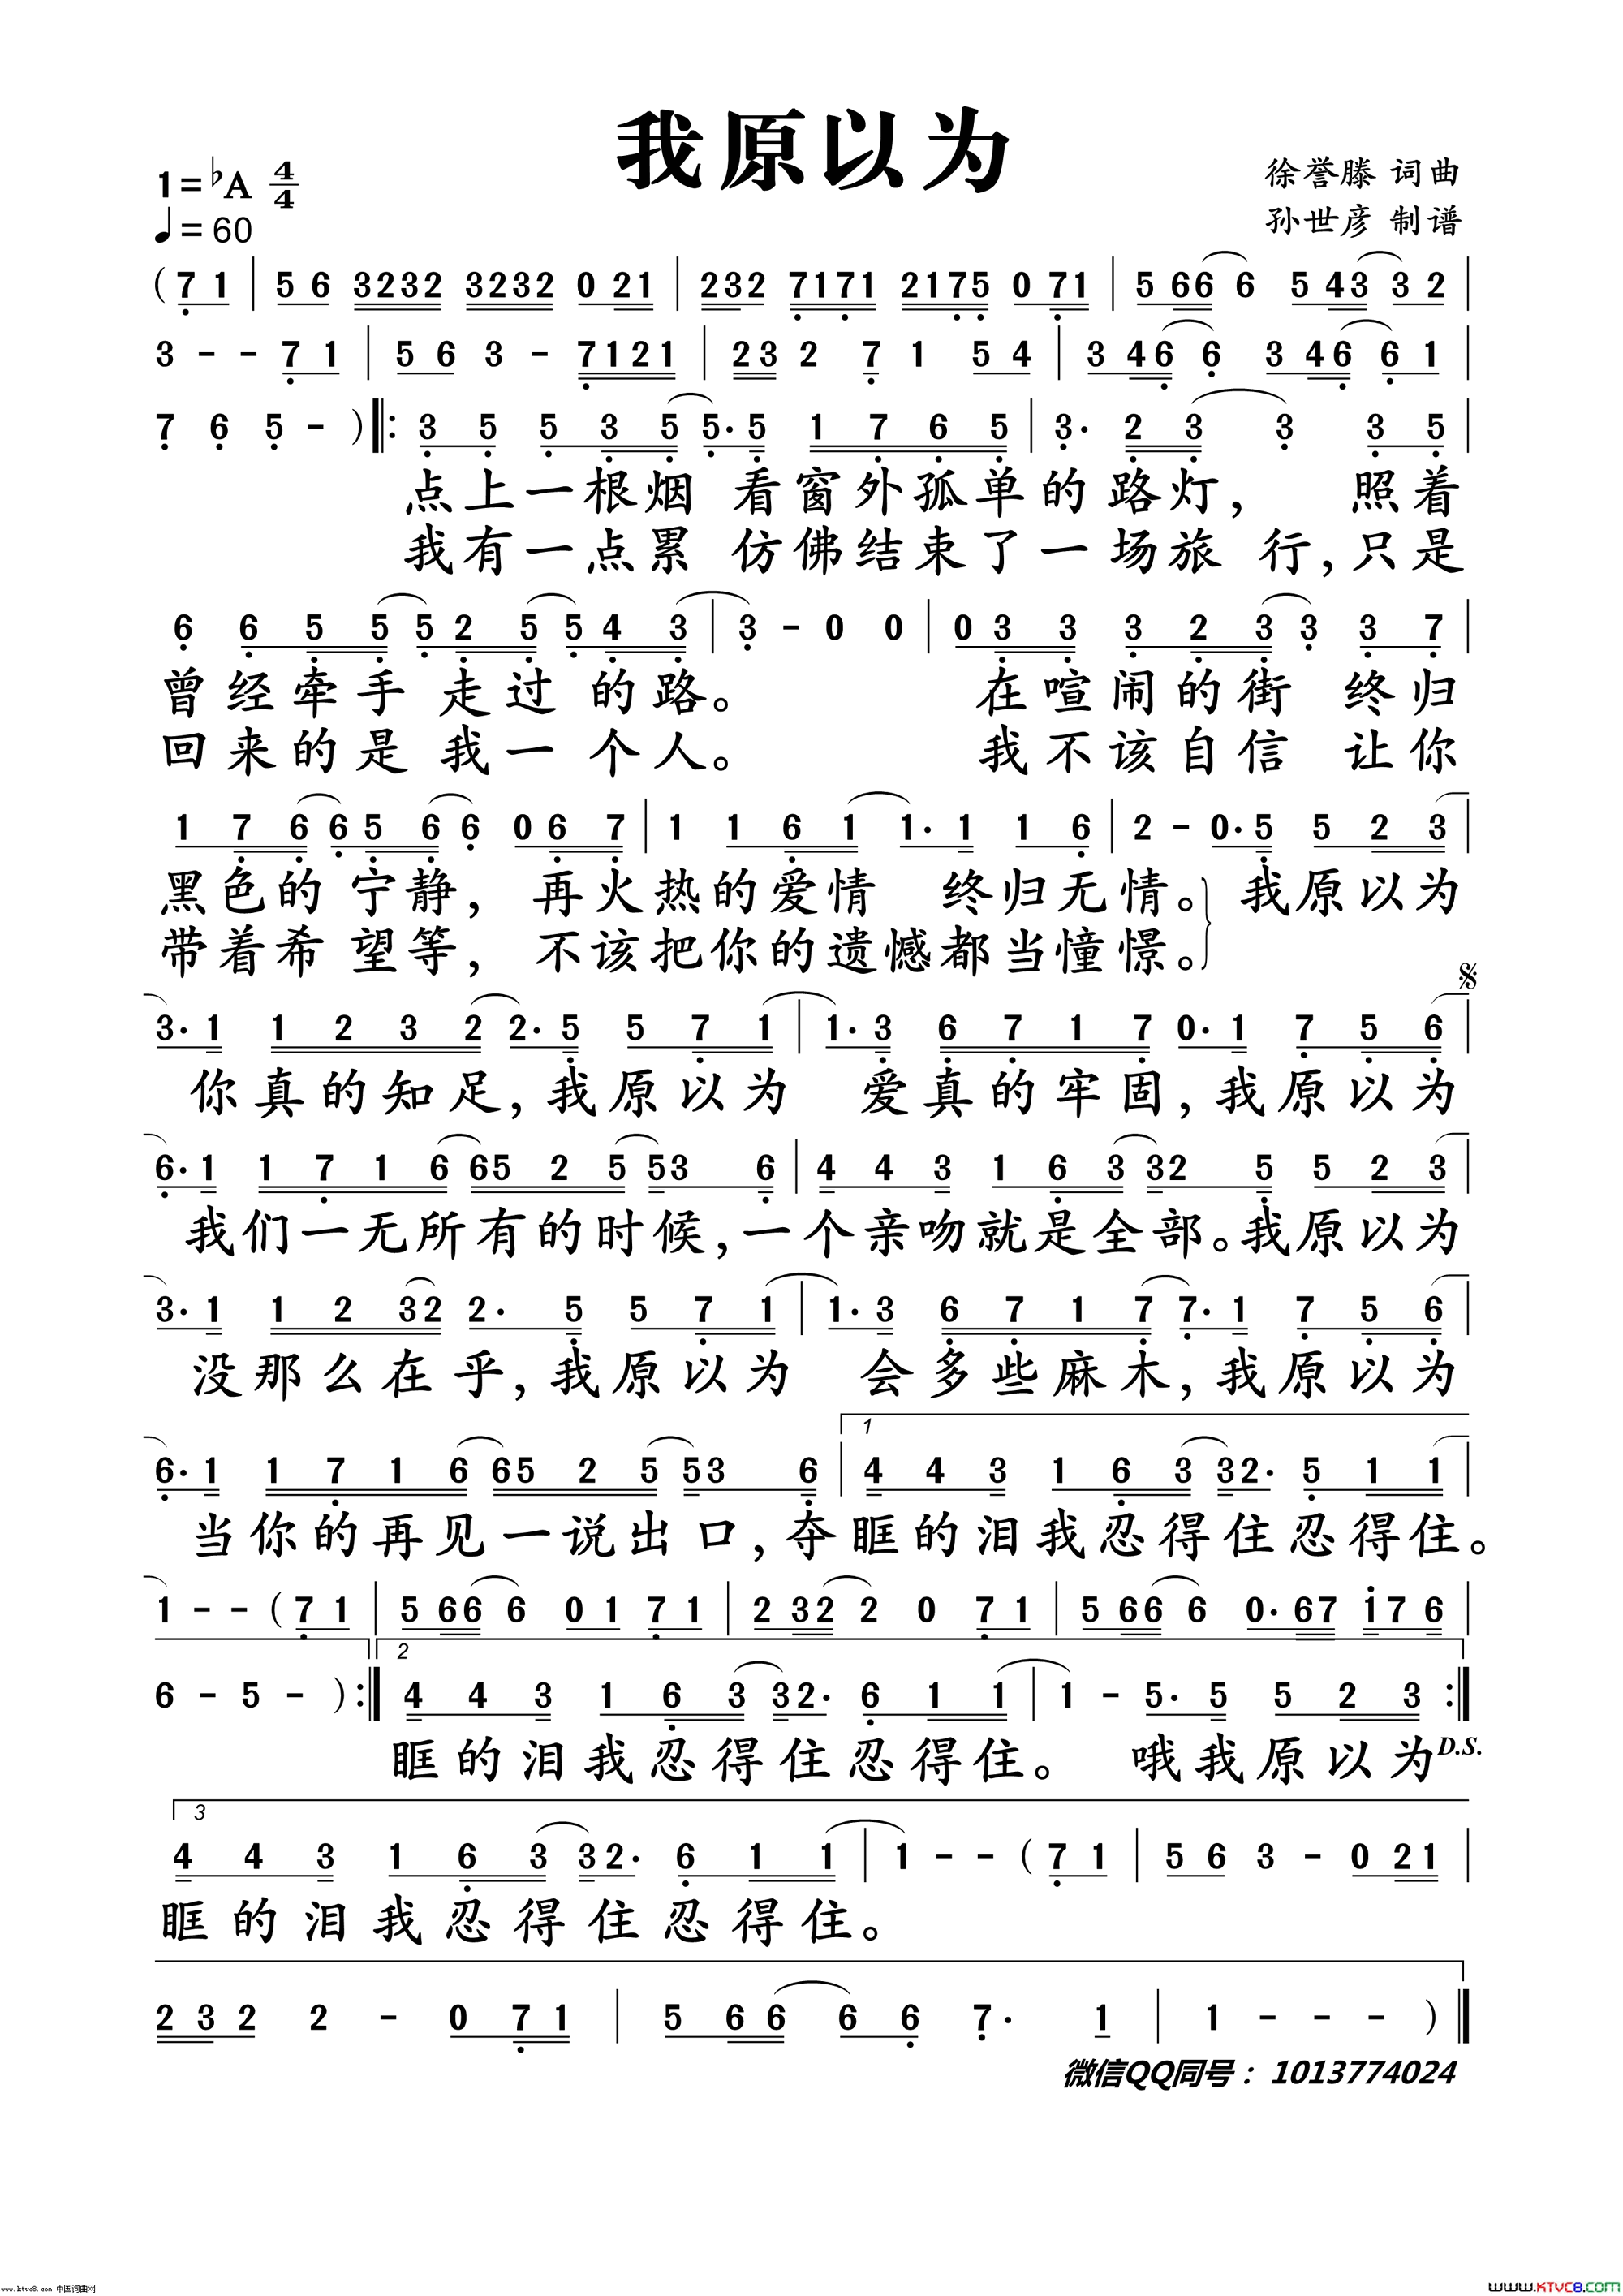 我原以为
1=♭A 4/4
♩=60
徐誉滕 词曲
孙世彦 制谱
(7 1 | 5 6 3232 3232 0 21 | 232 7171 2175 0 71 | 5 66 6 5 43 3 2 |
3 - - 7 1 | 5 6 3 - 7121 | 23 2 7 1 5 4 | 3 46 6 3 46 6 1 |
7 6 5 - ) ‖: 3 5 5 3 5 5. 5 1 7 6 5 | 3. 2 3 3 3 5 |
点上一根烟 看窗外孤单的路灯, 照着
我有一点累 仿佛结束了一场旅 行,只是
6 6 5 5 5 2 5 5 4 3 | 3 - 0 0 | 0 3 3 3 2 3 3 3 7 |
曾经牵手 走过 的路。 在喧闹的街 终归
回来的是 我一 个人。 我不该自信 让你
1 7 6 6 5 6 6 0 6 7 | 1 1 6 1 1. 1 1 6 | 2 - 0. 5 5 2 3 |
黑色的 宁静, 再火热的爱情 终归无情。 我原以为
带着希 望等, 不该把你的遗憾都当憧憬。
𝄋
3. 1 1 2 3 2 2. 5 5 7 1 | 1. 3 6 7 1 7 0. 1 7 5 6 |
你真的知足, 我原以为 爱真的牢固, 我原以为
6. 1 1 7 1 6 65 2 5 53 6 | 4 4 3 1 6 3 32 5 5 2 3 |
我们一无所有的时候, 一个亲吻就是全部。我原以为
3. 1 1 2 32 2. 5 5 7 1 | 1. 3 6 7 1 7 7. 1 7 5 6 |
没那么在乎, 我原以为 会多些麻木, 我原以为
1
6. 1 1 7 1 6 65 2 5 53 6 | 4 4 3 1 6 3 32. 5 1 1 |
当你的再见一说出口, 夺眶的泪我忍得住忍得住。
1 - - (7 1 | 5 66 6 0 1 7 1 | 2 32 2 0 7 1 | 5 66 6 0. 67 17 6 |
2
6 - 5 - ) :‖ 4 4 3 1 6 3 32. 6 1 1 | 1 - 5. 5 5 2 3 :‖
眶的泪我忍得住忍得住。 哦我原以为 D.S.
3
4 4 3 1 6 3 32. 6 1 1 | 1 - - (7 1 | 5 6 3 - 0 21 |
眶的泪我忍得住忍得住。
2 3 2 2 - 0 7 1 | 5 6 6 6 6 7. 1 | 1 - - - ) ‖
微信QQ同号：1013774024
www.ktvc8.com 中国词曲网
www.KTVC8.com